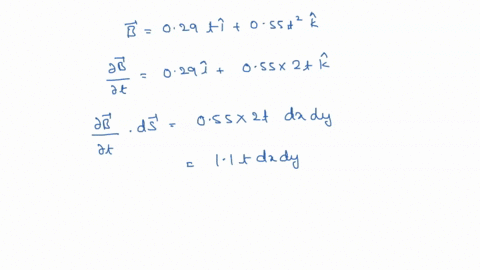 B⃗ = 0.29 t î + 0.55 t² k̂
∂B⃗/∂t = 0.29 î + 0.55 × 2t k̂
∂B⃗/∂t · dS⃗ = 0.55 × 2t dx dy
= 1.1 t dx dy